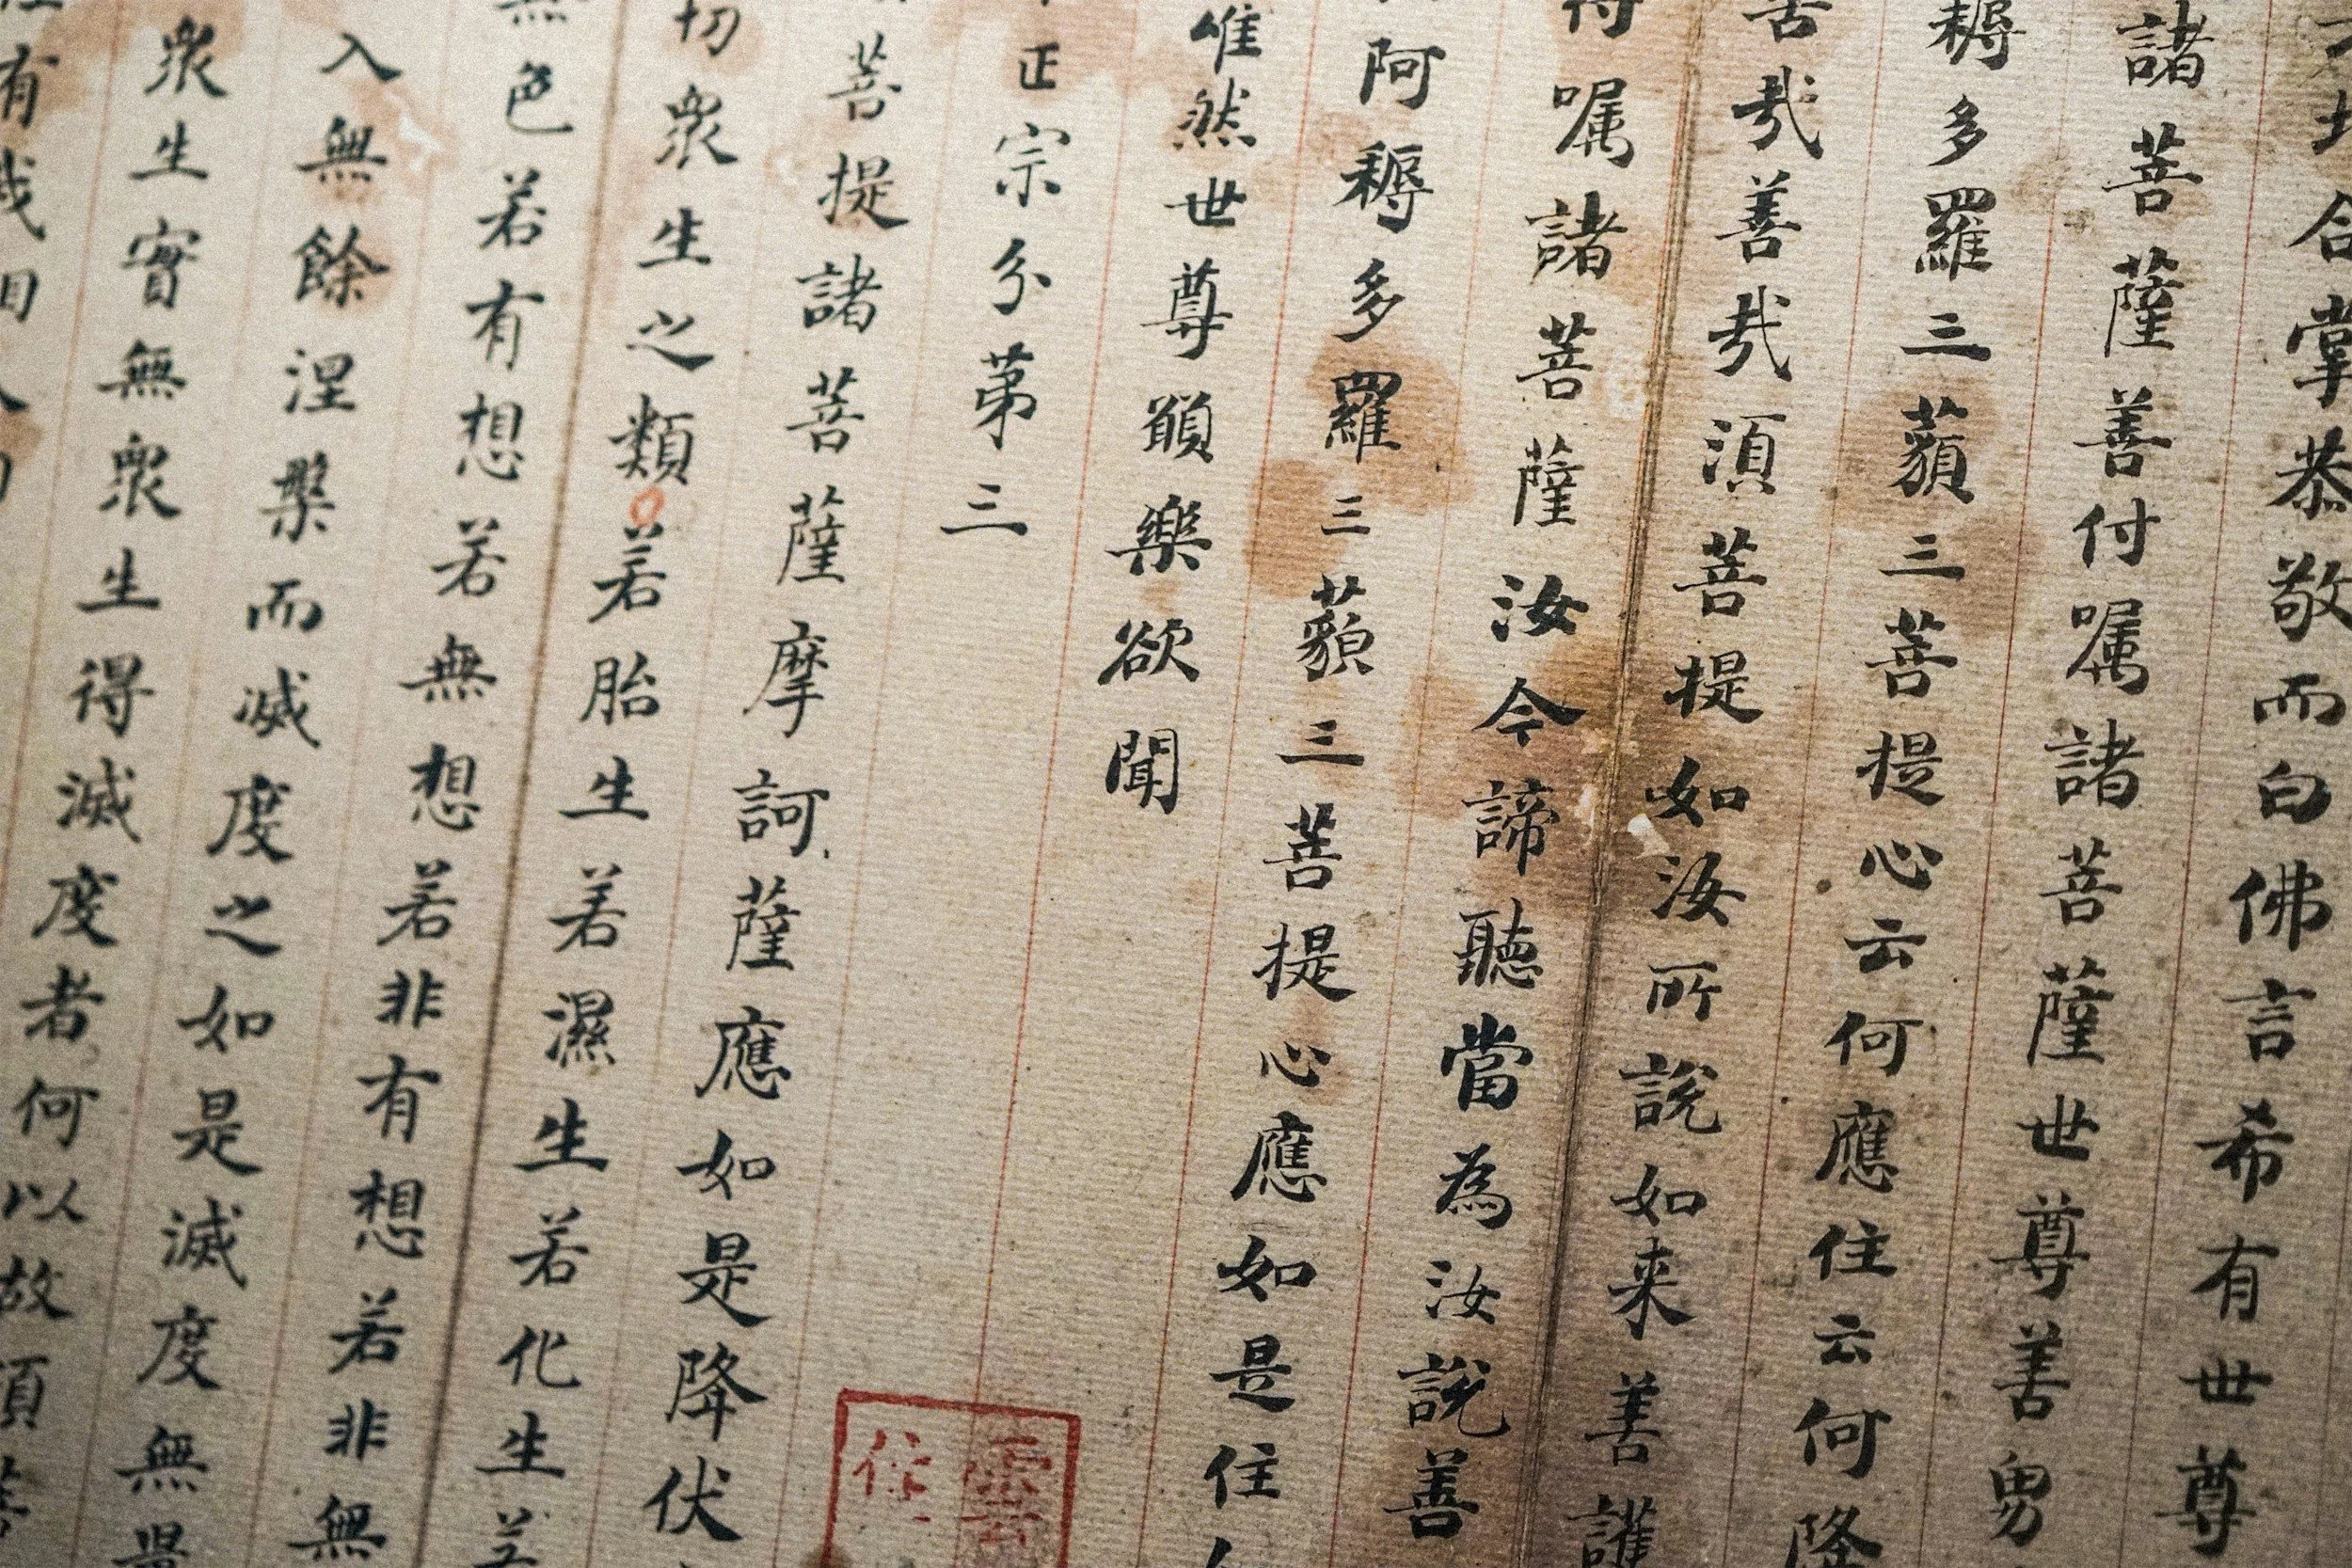 合掌恭敬而白佛言希有世尊
諸菩薩善付嘱諸菩薩世尊善男
耨多羅三藐三菩提心云何應住云何降
哉善哉湏菩提如汝所說如来善護
嘱諸菩薩汝今諦聽當為汝說善
阿耨多羅三藐三菩提心應如是住
唯然世尊願樂欲聞
正宗分第三
菩提諸菩薩摩訶薩應如是降伏
切衆生之類若胎生若濕生若化生若
色若有想若無想若非有想若非無
入無餘涅槃而滅度之如是滅度無量
衆生實無衆生得滅度者何以故須菩
有我相人相
雲
住